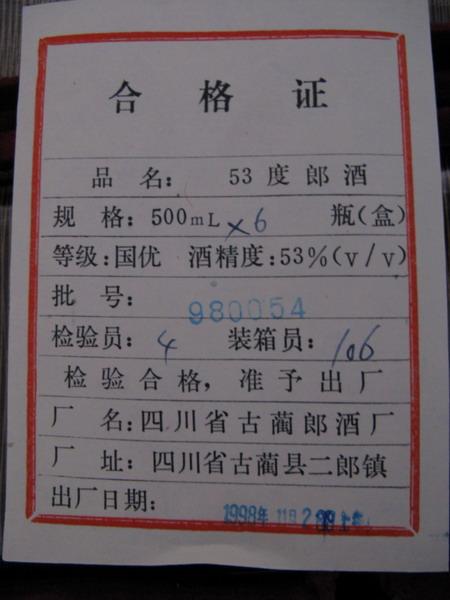 合格证
品名：53度郎酒
规格：500mL ×6 瓶(盒)
等级：国优 酒精度：53%(v/v)
批号：980054
检验员：4 装箱员：106
检验合格，准予出厂
厂名：四川省古蔺郎酒厂
厂址：四川省古蔺县二郎镇
出厂日期：1998年 11月